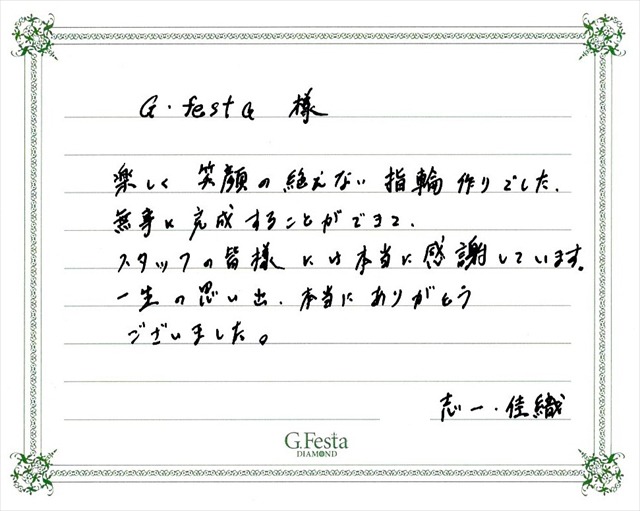 G.festa 様
楽しく 笑顔の絶えない 指輪作りでした。
無事に完成することができて、
スタッフの皆様には本当に感謝しています。
一生の思い出、本当にありがとう
ございました。
志一・佳織
G.Festa
DIAMOND